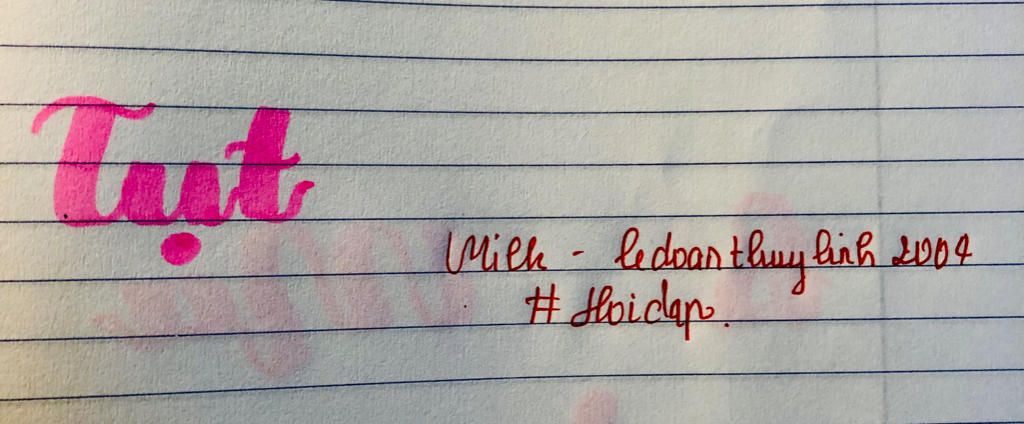 Tụt
Milk - ledoanthuylinh 2004
# Hoidap.